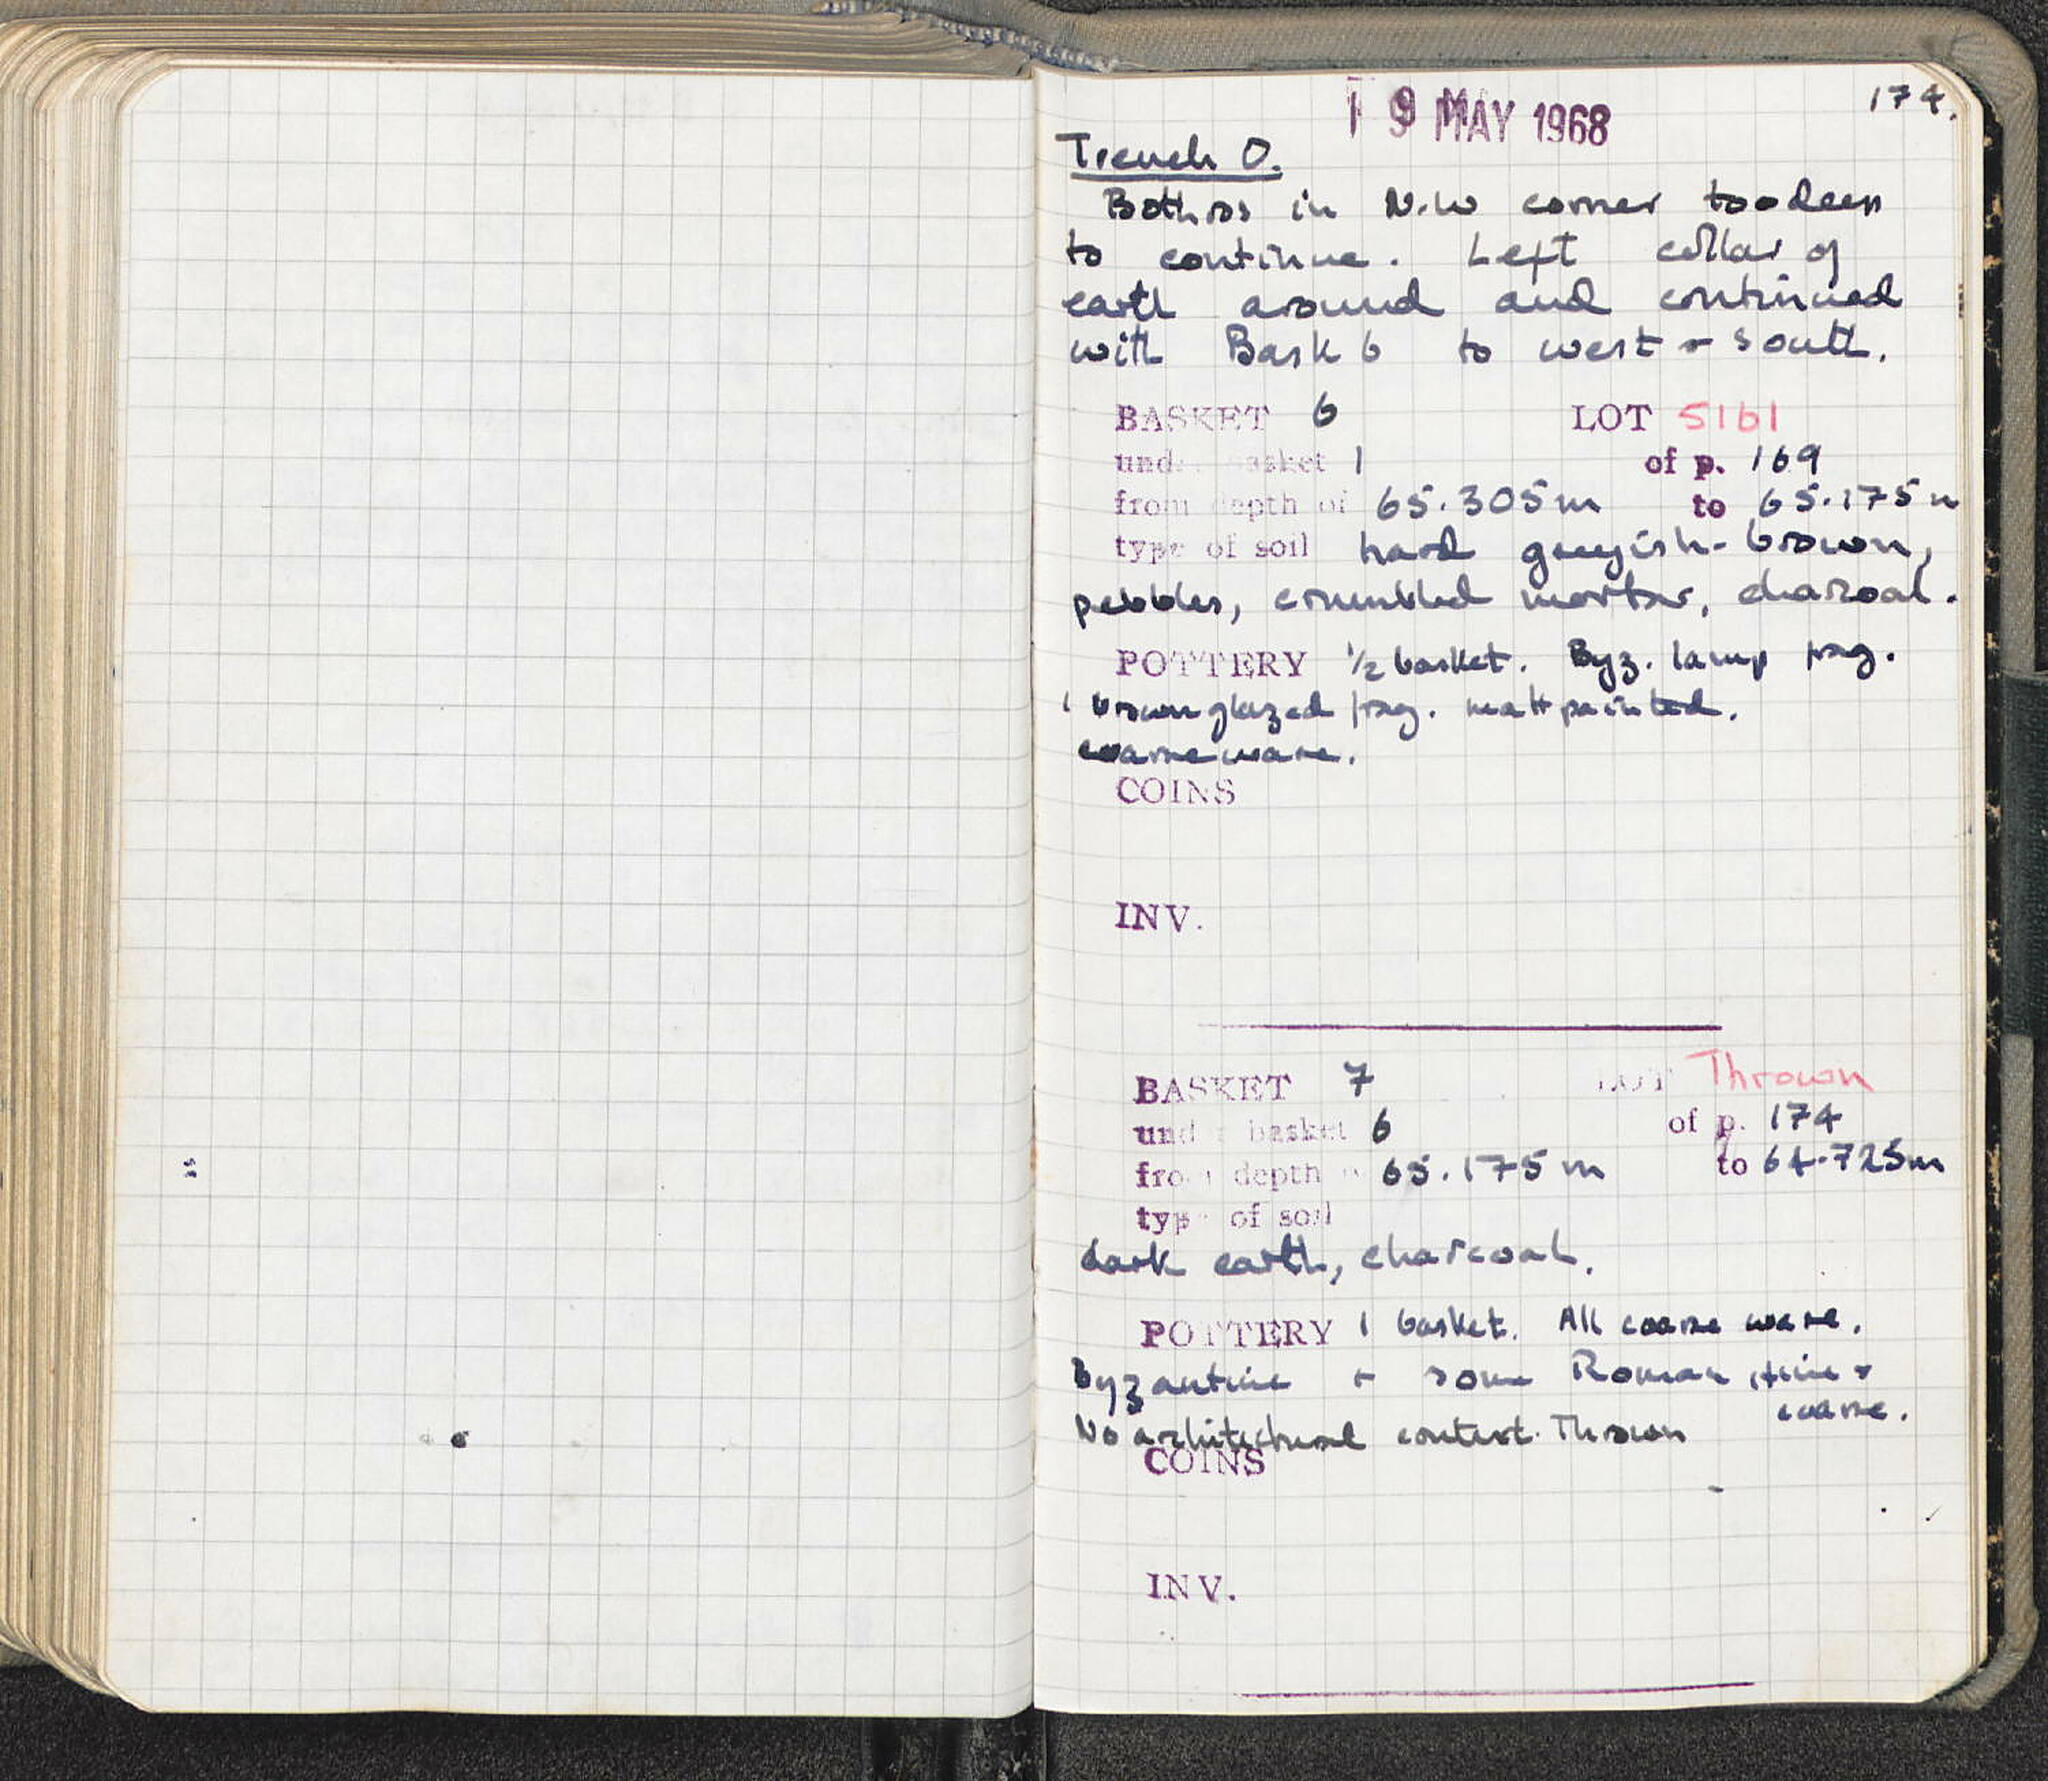 174.
19 MAY 1968
Trench O.
Bothros in N.W corner too deep
to continue. Left collar of
earth around and continued
with Bask 6 to west + south.
BASKET 6 LOT 5161
under basket 1 of p. 169
from depth of 65.305m to 65.175m
type of soil hard greyish-brown,
pebbles, crumbled mortar, charcoal.
POTTERY 1/2 basket. Byz. lamp frag.
1 brown glazed frag. matt painted.
coarse ware.
COINS
INV.
BASKET 7 LOT Thrown
under basket 6 of p. 174
from depth of 65.175m to 64.725m
type of soil
dark earth, charcoal.
POTTERY 1 basket. All coarse ware.
Byzantine + some Roman fine +
coarse.
No architectural context. Thrown
COINS
INV.